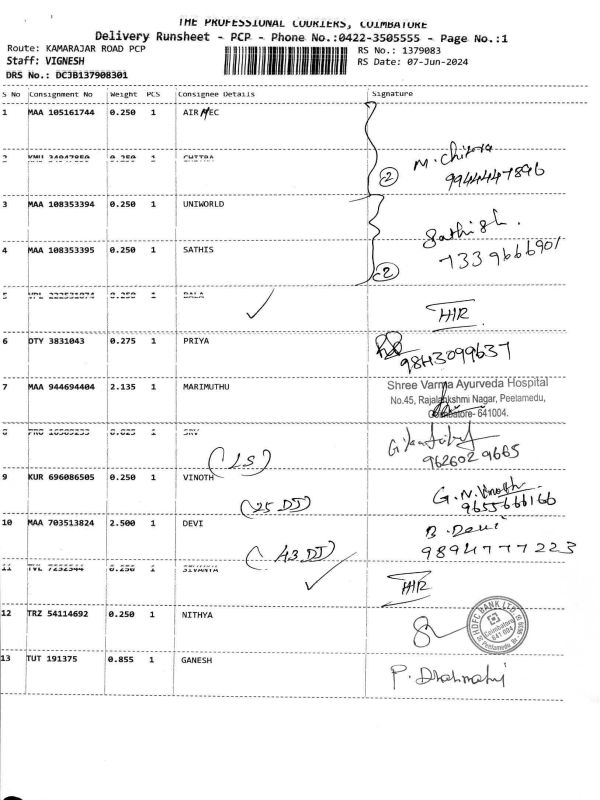 THE PROFESSIONAL COURIERS, COIMBATORE
Delivery Runsheet - PCP - Phone No.:0422-3505555 - Page No.:1
Route: KAMARAJAR ROAD PCP
RS No.: 1379083
Staff: VIGNESH
RS Date: 07-Jun-2024
DRS No.: DCJB137908301
S No Consignment No Weight PCS Consignee Details Signature
1 MAA 105161744 0.250 1 AIR
M. Chitra
9944447896
2 0.250 1 CHITRA
②
3 MAA 108353394 0.250 1 UNIWORLD
Sathish.
7339666901
4 MAA 108353395 0.250 1 SATHIS
②
5 0.250 1 BALA
6 DTY 3831043 0.275 1 PRIYA
9843099637
7 MAA 944694404 2.135 1 MARIMUTHU
Shree Varma Ayurveda Hospital
No.45, Rajalakshmi Nagar, Peelamedu,
Coimbatore- 641004.
8 1 SRV
(LS)
9626029665
9 KUR 696086505 0.250 1 VINOTH
(25 DJ)
G.N.Vinoth
9655666166
10 MAA 703513824 2.500 1 DEVI
(43 DJ)
B. Devi
9894777223
11 0.250 1
12 TRZ 54114692 0.250 1 NITHYA
HDFC BANK LTD.
Coimbatore
641 004
13 TUT 191375 0.855 1 GANESH